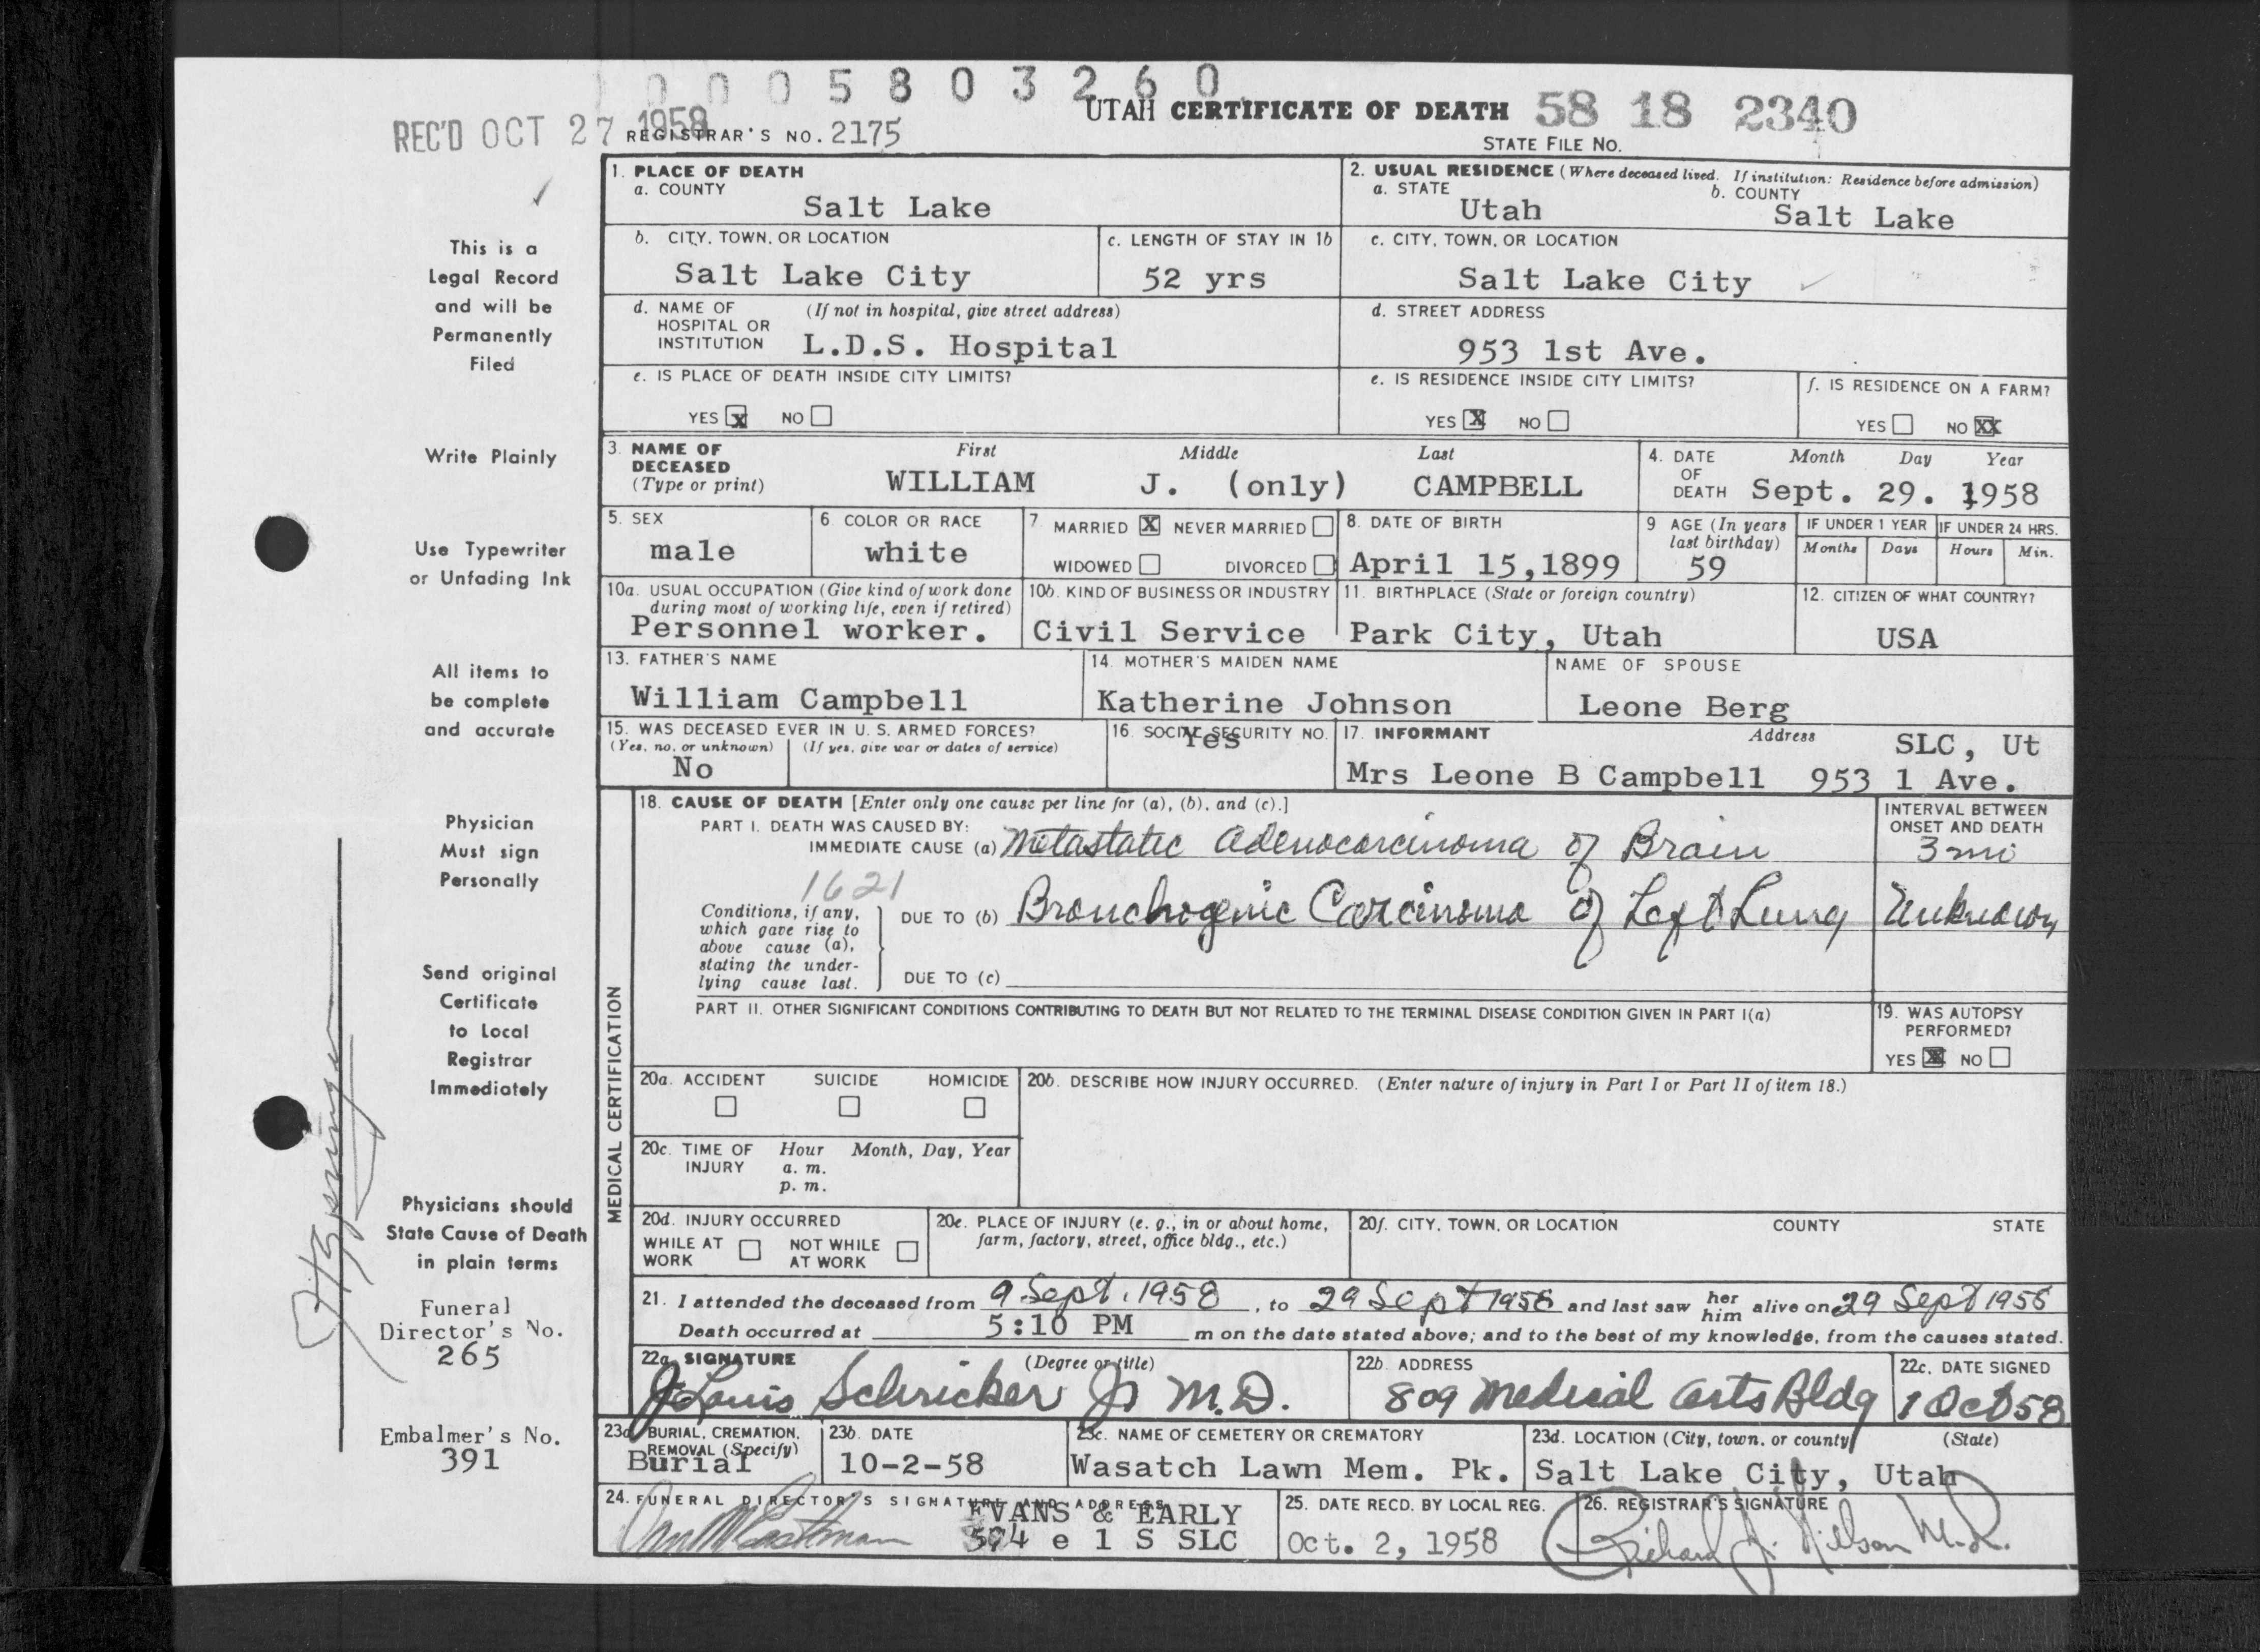 0 0 0 5 8 0 3 2 6 0
REC'D OCT 27 1958
REGISTRAR'S NO. 2175
UTAH CERTIFICATE OF DEATH 58 18 2340
STATE FILE NO.
This is a
Legal Record
and will be
Permanently
Filed
Write Plainly
Use Typewriter
or Unfading Ink
All items to
be complete
and accurate
Physician
Must sign
Personally
Send original
Certificate
to Local
Registrar
Immediately
Physicians should
State Cause of Death
in plain terms
Funeral
Director's No.
265
Embalmer's No.
391
1. PLACE OF DEATH
a. COUNTY
Salt Lake
2. USUAL RESIDENCE (Where deceased lived. If institution: Residence before admission)
a. STATE b. COUNTY
Utah Salt Lake
b. CITY, TOWN, OR LOCATION
Salt Lake City
c. LENGTH OF STAY IN 1b
52 yrs
c. CITY, TOWN, OR LOCATION
Salt Lake City
d. NAME OF (If not in hospital, give street address)
HOSPITAL OR
INSTITUTION L.D.S. Hospital
d. STREET ADDRESS
953 1st Ave.
e. IS PLACE OF DEATH INSIDE CITY LIMITS?
YES X NO
e. IS RESIDENCE INSIDE CITY LIMITS?
YES X NO
f. IS RESIDENCE ON A FARM?
YES NO XX
3. NAME OF First Middle Last
DECEASED
(Type or print) WILLIAM J. (only) CAMPBELL
4. DATE Month Day Year
OF
DEATH Sept. 29. 1958
5. SEX
male
6. COLOR OR RACE
white
7. MARRIED X NEVER MARRIED
WIDOWED DIVORCED
8. DATE OF BIRTH
April 15,1899
9. AGE (In years
last birthday)
59
IF UNDER 1 YEAR IF UNDER 24 HRS.
Months Days Hours Min.
10a. USUAL OCCUPATION (Give kind of work done
during most of working life, even if retired)
Personnel worker.
10b. KIND OF BUSINESS OR INDUSTRY
Civil Service
11. BIRTHPLACE (State or foreign country)
Park City, Utah
12. CITIZEN OF WHAT COUNTRY?
USA
13. FATHER'S NAME
William Campbell
14. MOTHER'S MAIDEN NAME
Katherine Johnson
NAME OF SPOUSE
Leone Berg
15. WAS DECEASED EVER IN U. S. ARMED FORCES?
(Yes, no, or unknown) (If yes, give war or dates of service)
No
16. SOCIAL SECURITY NO.
Yes
17. INFORMANT Address SLC, Ut
Mrs Leone B Campbell 953 1 Ave.
MEDICAL CERTIFICATION
18. CAUSE OF DEATH [Enter only one cause per line for (a), (b), and (c).]
INTERVAL BETWEEN
ONSET AND DEATH
PART I. DEATH WAS CAUSED BY:
IMMEDIATE CAUSE (a) Metastatic Adenocarcinoma of Brain 3 mo
1621
Conditions, if any,
which gave rise to
above cause (a),
stating the under-
lying cause last.
DUE TO (b) Bronchogenic Carcinoma of Left Lung Unknown
DUE TO (c)
PART II. OTHER SIGNIFICANT CONDITIONS CONTRIBUTING TO DEATH BUT NOT RELATED TO THE TERMINAL DISEASE CONDITION GIVEN IN PART I(a)
19. WAS AUTOPSY
PERFORMED?
YES X NO
20a. ACCIDENT SUICIDE HOMICIDE
20b. DESCRIBE HOW INJURY OCCURRED. (Enter nature of injury in Part I or Part II of item 18.)
20c. TIME OF Hour Month, Day, Year
INJURY a. m.
p. m.
20d. INJURY OCCURRED
WHILE AT NOT WHILE
WORK AT WORK
20e. PLACE OF INJURY (e. g., in or about home,
farm, factory, street, office bldg., etc.)
20f. CITY, TOWN, OR LOCATION COUNTY STATE
21. I attended the deceased from 9 Sept. 1958, to 29 Sept 1958 and last saw her him alive on 29 Sept 1958
Death occurred at 5:10 PM m on the date stated above; and to the best of my knowledge, from the causes stated.
22a. SIGNATURE (Degree or title)
J Louis Schricker Jr M.D.
22b. ADDRESS
809 Medical Arts Bldg
22c. DATE SIGNED
1 Oct 58
23a. BURIAL, CREMATION,
REMOVAL (Specify)
Burial
23b. DATE
10-2-58
23c. NAME OF CEMETERY OR CREMATORY
Wasatch Lawn Mem. Pk.
23d. LOCATION (City, town, or county) (State)
Salt Lake City, Utah
24. FUNERAL DIRECTOR'S SIGNATURE AND ADDRESS
EVANS & EARLY
574 e 1 S SLC
25. DATE RECD. BY LOCAL REG.
Oct. 2, 1958
26. REGISTRAR'S SIGNATURE
Richard J. Nilson M.D.